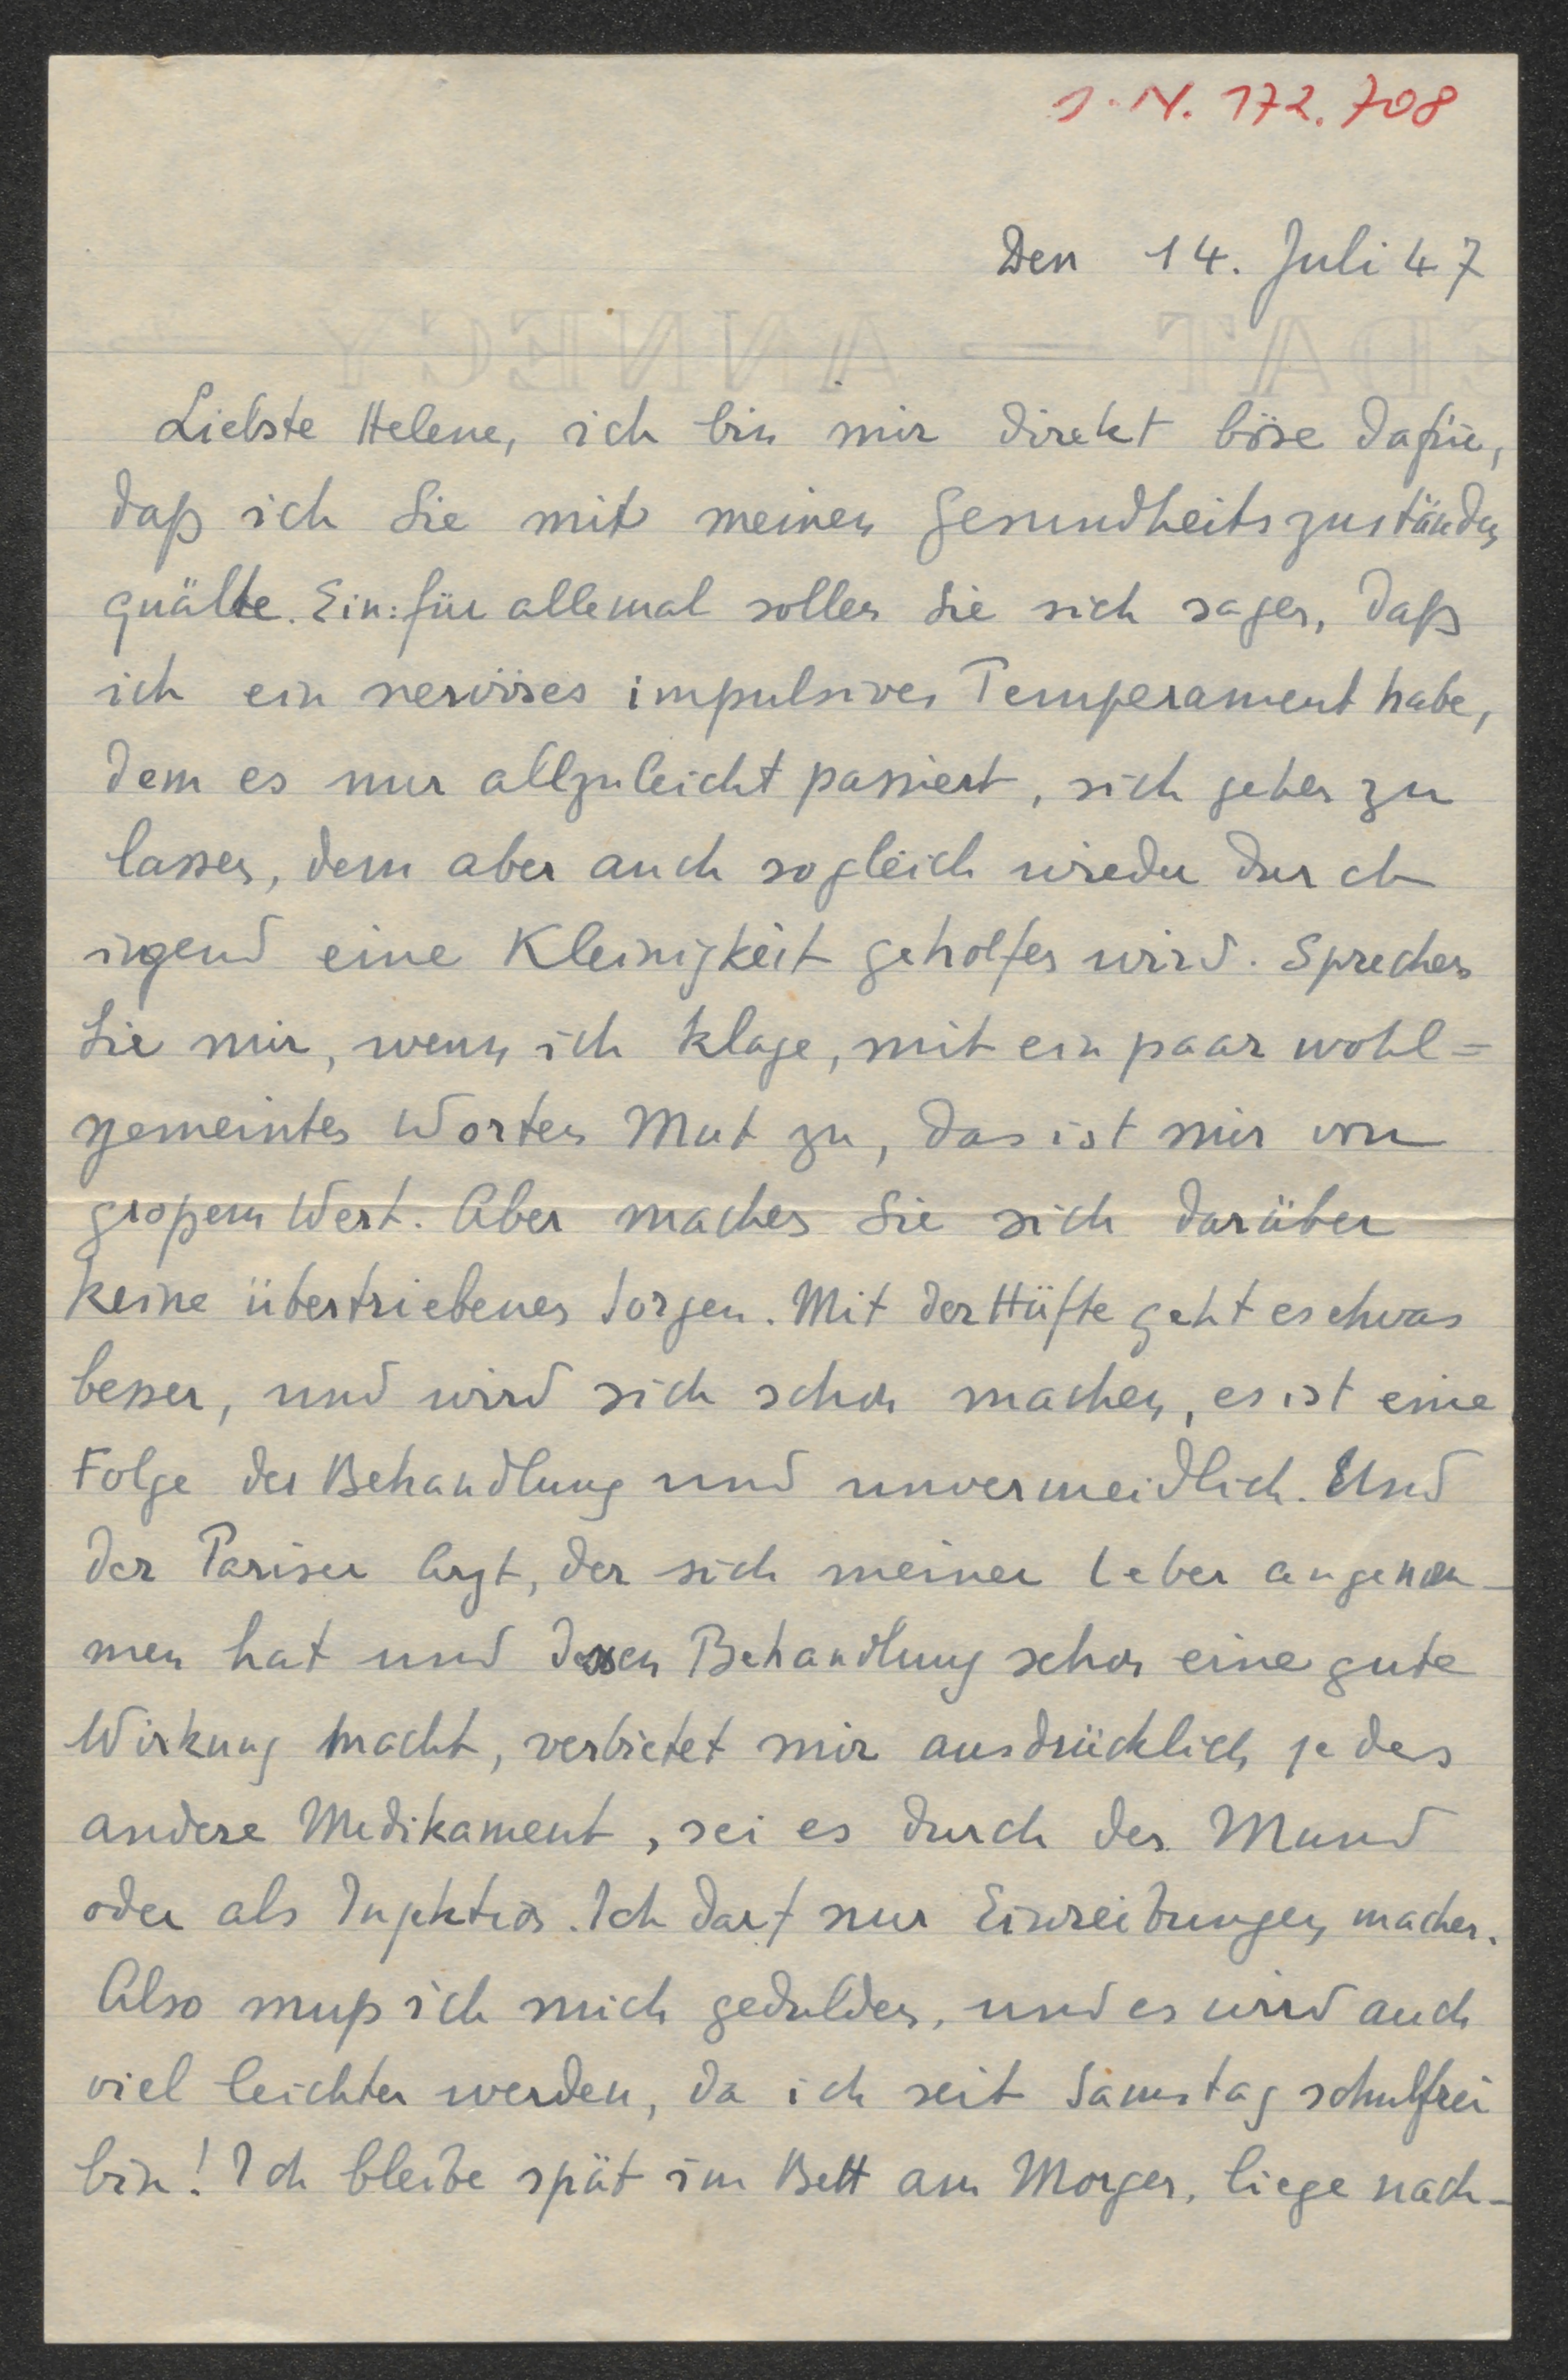 J. N. 172.708
Den 14. Juli 47
EDAT — ANNECY —
Liebste Helene, ich bin mir direkt böse dafür,
daß ich Sie mit meinen Gesundheitszuständen
quälte. Ein: für allemal sollen Sie sich sagen, daß
ich ein nervöses impulsives Temperament habe,
dem es nur allzuleicht passiert, sich gehen zu
lassen, dem aber auch sogleich wieder durch
irgend eine Kleinigkeit geholfen wird. Sprechen
Sie mir, wenn ich klage, mit ein paar wohl=
gemeinten Worten Mut zu, das ist mir von
großem Wert. Aber machen Sie sich darüber
keine übertriebenen Sorgen. Mit der Hüfte geht es etwas
besser, und wird sich schon machen, es ist eine
Folge der Behandlung und unvermeidlich. Und
der Pariser Arzt, der sich meiner Leber angenom-
men hat und dessen Behandlung schon eine gute
Wirkung macht, verbietet mir ausdrücklich jedes
andere Medikament, sei es durch den Mund
oder als Injektion. Ich darf nur Einreibungen machen.
Also muß ich mich gedulden, und es wird auch
viel leichter werden, da ich seit Samstag schulfrei
bin! Ich bleibe spät im Bett am Morgen, liege nach-